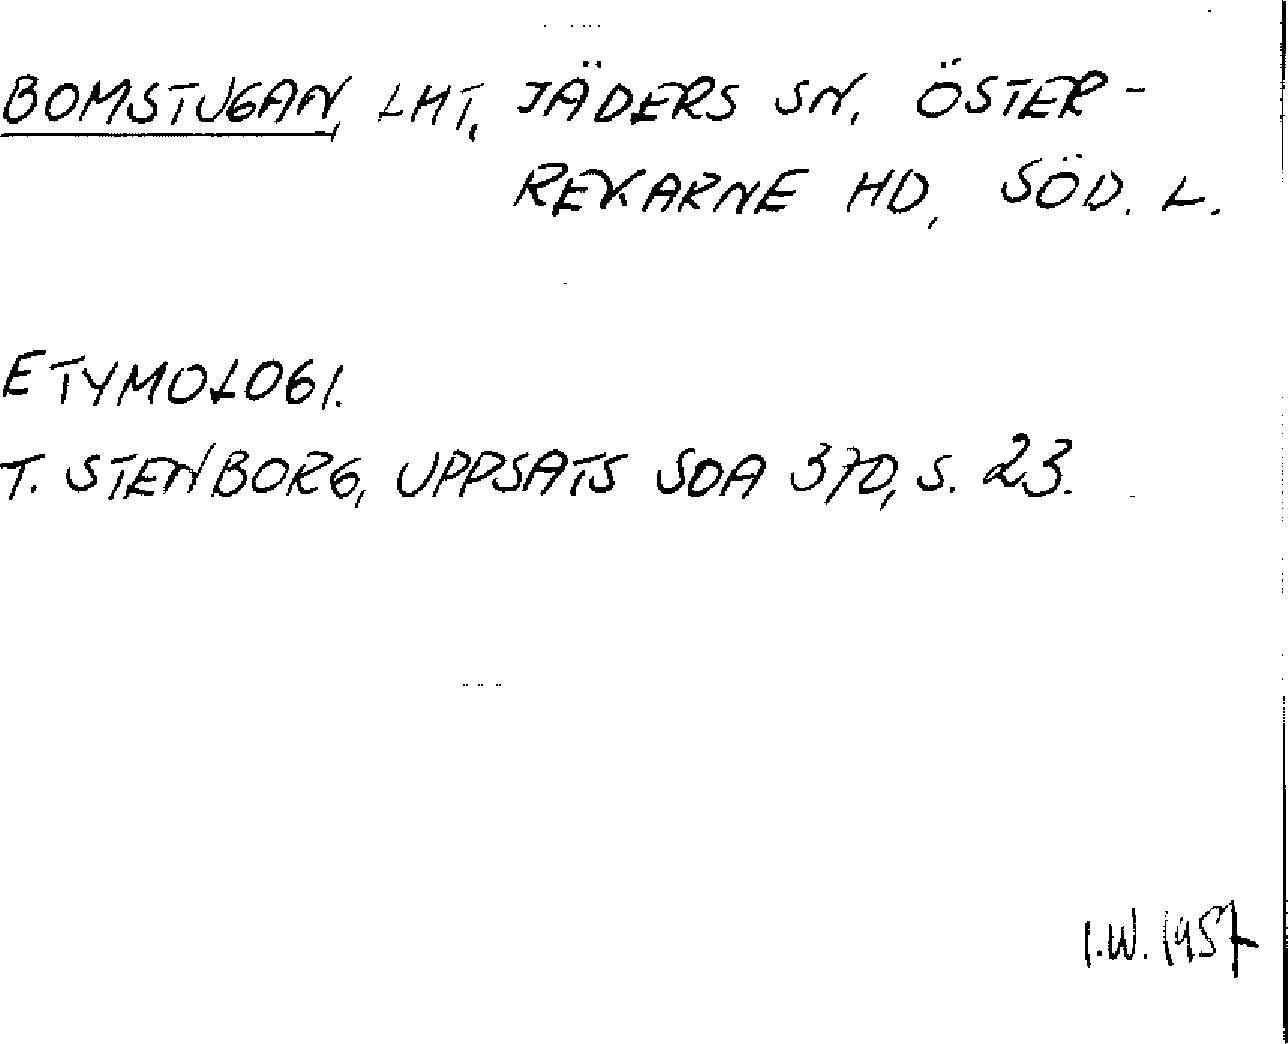 BOMSTUGAN, LHT, JÄDERS SN, ÖSTER-
REKARNE HD, SÖD. L.
ETYMOLOGI.
T. STENBORG, UPPSATS SOA 370, S. 23.
I.W. 1957